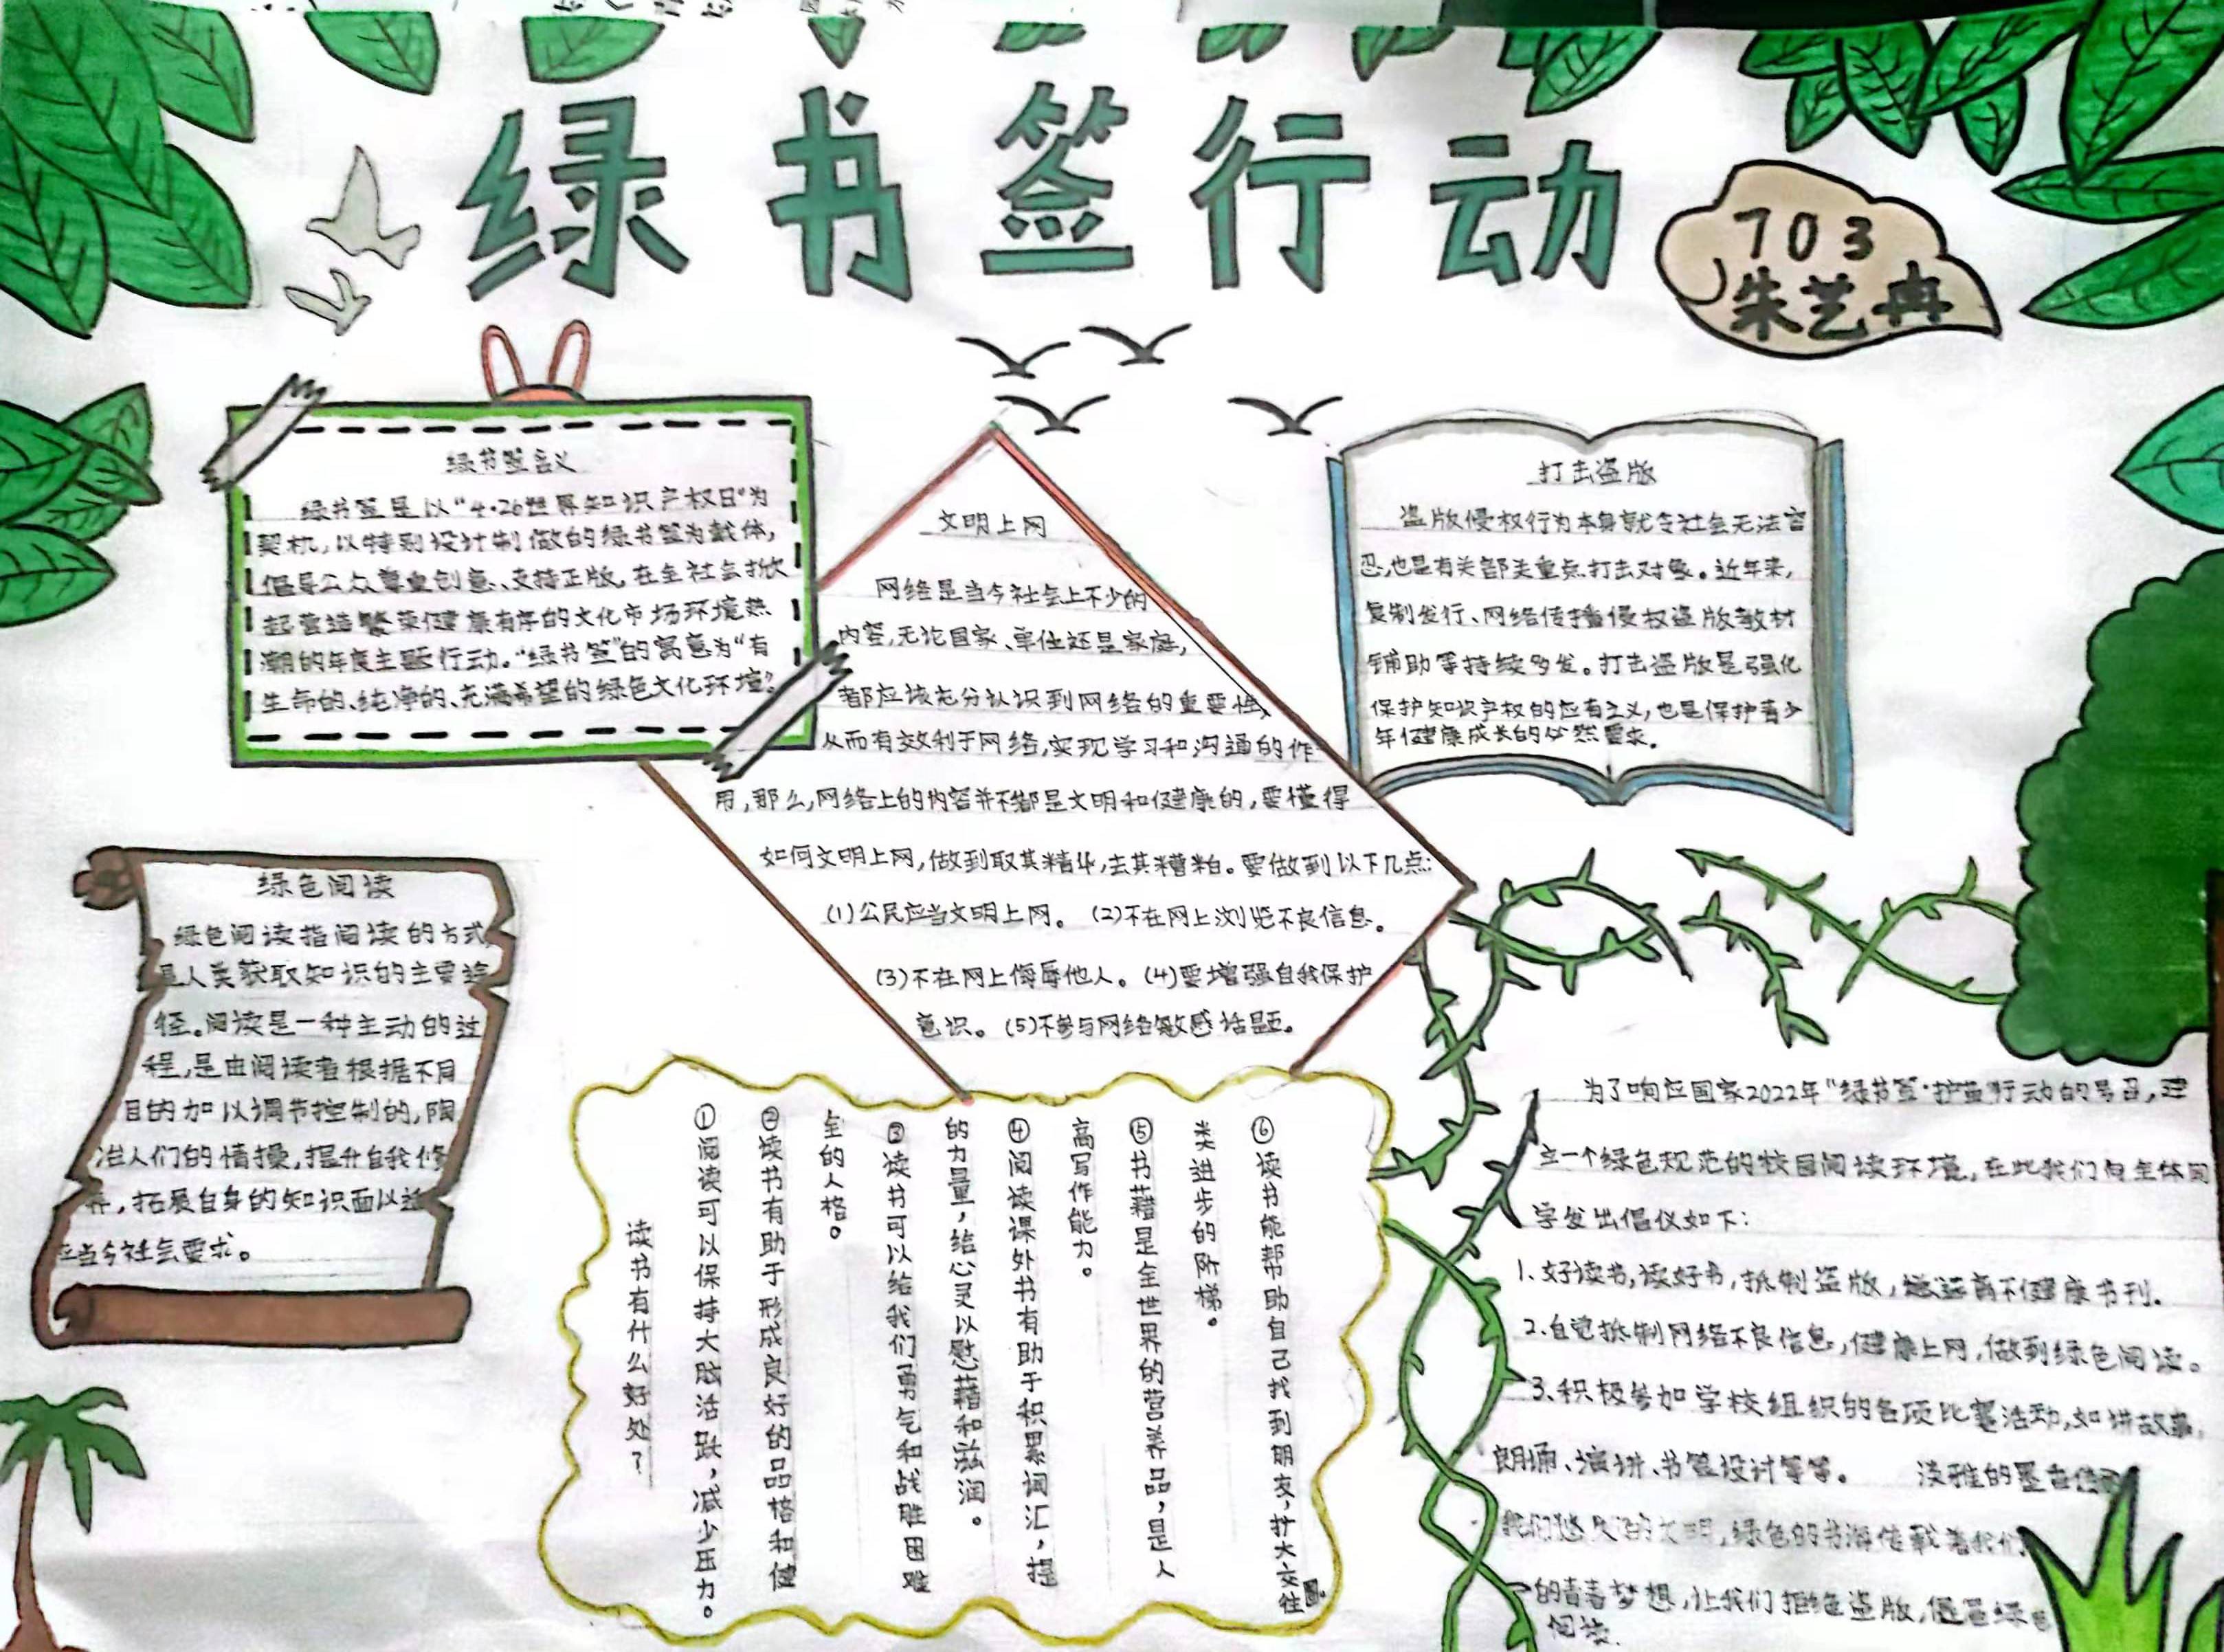 绿书签行动
703
朱艺冉
绿书签含义
绿书签是以“4·26世界知识产权日”为
契机,以特别设计制做的绿书签为载体,
倡导公众尊重创意、支持正版,在全社会掀
起营造繁荣健康有序的文化市场环境热
潮的年度主题行动。“绿书签”的寓意为“有
生命的、纯净的、充满希望的绿色文化环境”。
文明上网
网络是当今社会上不少的
内容,无论国家、单位还是家庭,
都应该充分认识到网络的重要性,
从而有效利于网络,实现学习和沟通的作
用,那么,网络上的内容并不都是文明和健康的,要懂得
如何文明上网,做到取其精华,去其糟粕。要做到以下几点:
(1)公民应当文明上网。 (2)不在网上浏览不良信息。
(3)不在网上侮辱他人。 (4)要增强自我保护
意识。 (5)不参与网络敏感话题。
打击盗版
盗版侵权行为本身就令社会无法容
忍,也是有关部关重点打击对象。近年来,
复制发行、网络传播侵权盗版教材
辅助等持续多发。打击盗版是强化
保护知识产权的应有之义,也是保护青少
年健康成长的必然要求。
绿色阅读
绿色阅读指阅读的方式,
是人类获取知识的主要途
径。阅读是一种主动的过
程,是由阅读者根据不同
目的加以调节控制的,陶
冶人们的情操,提升自我修
养,拓展自身的知识面以适
应当今社会要求。
读书有什么好处?
①阅读可以保持大脑活跃,减少压力。
②读书有助于形成良好的品格和健
全的人格。
③读书可以给我们勇气和战胜困难
的力量,给心灵以慰藉和滋润。
④阅读课外书有助于积累词汇,提
高写作能力。
⑤书籍是全世界的营养品,是人
类进步的阶梯。
⑥读书能帮助自己找到朋友,扩大交往圈。
为了响应国家2022年“绿书签·护苗”行动的号召,建
立一个绿色规范的校园阅读环境,在此我们向全体同
学发出倡仪如下:
1.好读书,读好书,抵制盗版,远离不健康书刊。
2.自觉抵制网络不良信息,健康上网,做到绿色阅读。
3.积极参加学校组织的各项比赛活动,如讲故事,
朗诵、演讲、书签设计等等。 淡雅的墨香
我们悠久的文明,绿色的书海传载着我们
的青春梦想,让我们拒绝盗版,倡绿色
阅读。